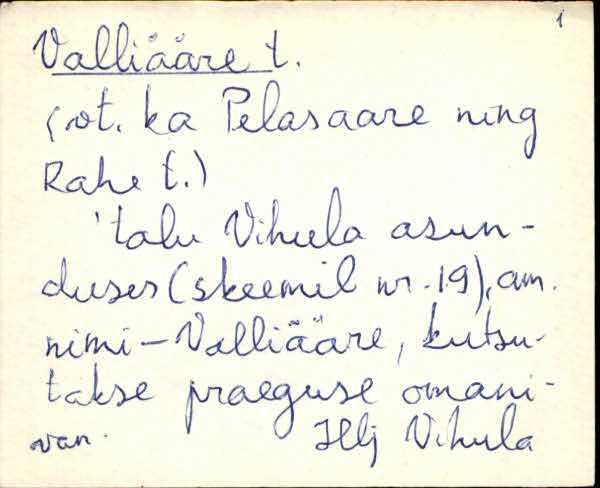 1
Valliääre t.
(vt. ka Pelasaare ning
Rahe t.)
'talu Vihula asun-
duses (skeemil nr. 19), am.
nimi - Valliääre, kutsu-
takse praeguse omani-
van. Hlj Vihula